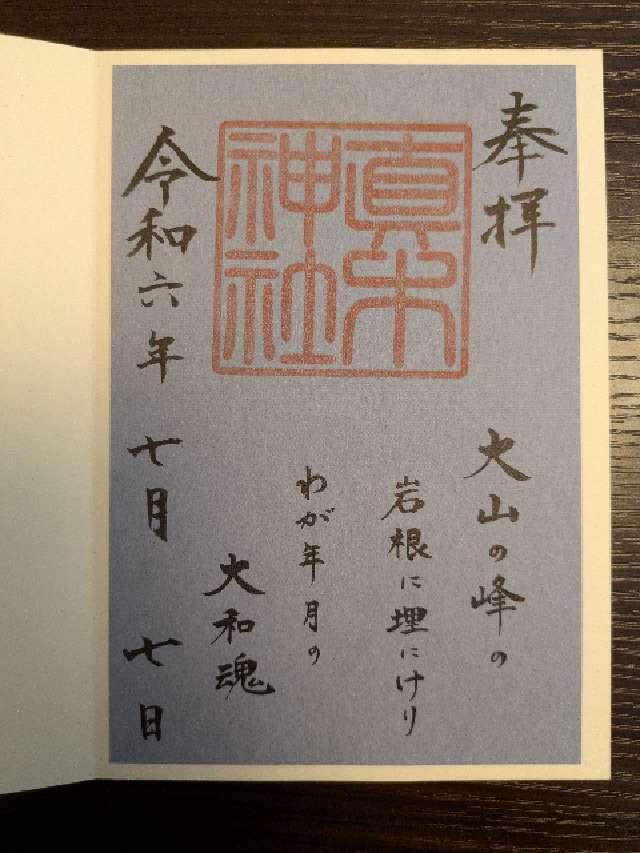 奉拝
真木
神社
大山の峰の
岩根に埋にけり
わが年月の
大和魂
令和六年七月七日